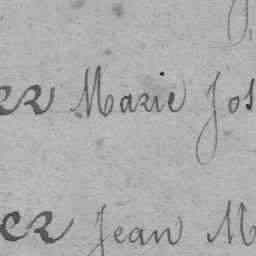 er Marie Jos
er Jean M